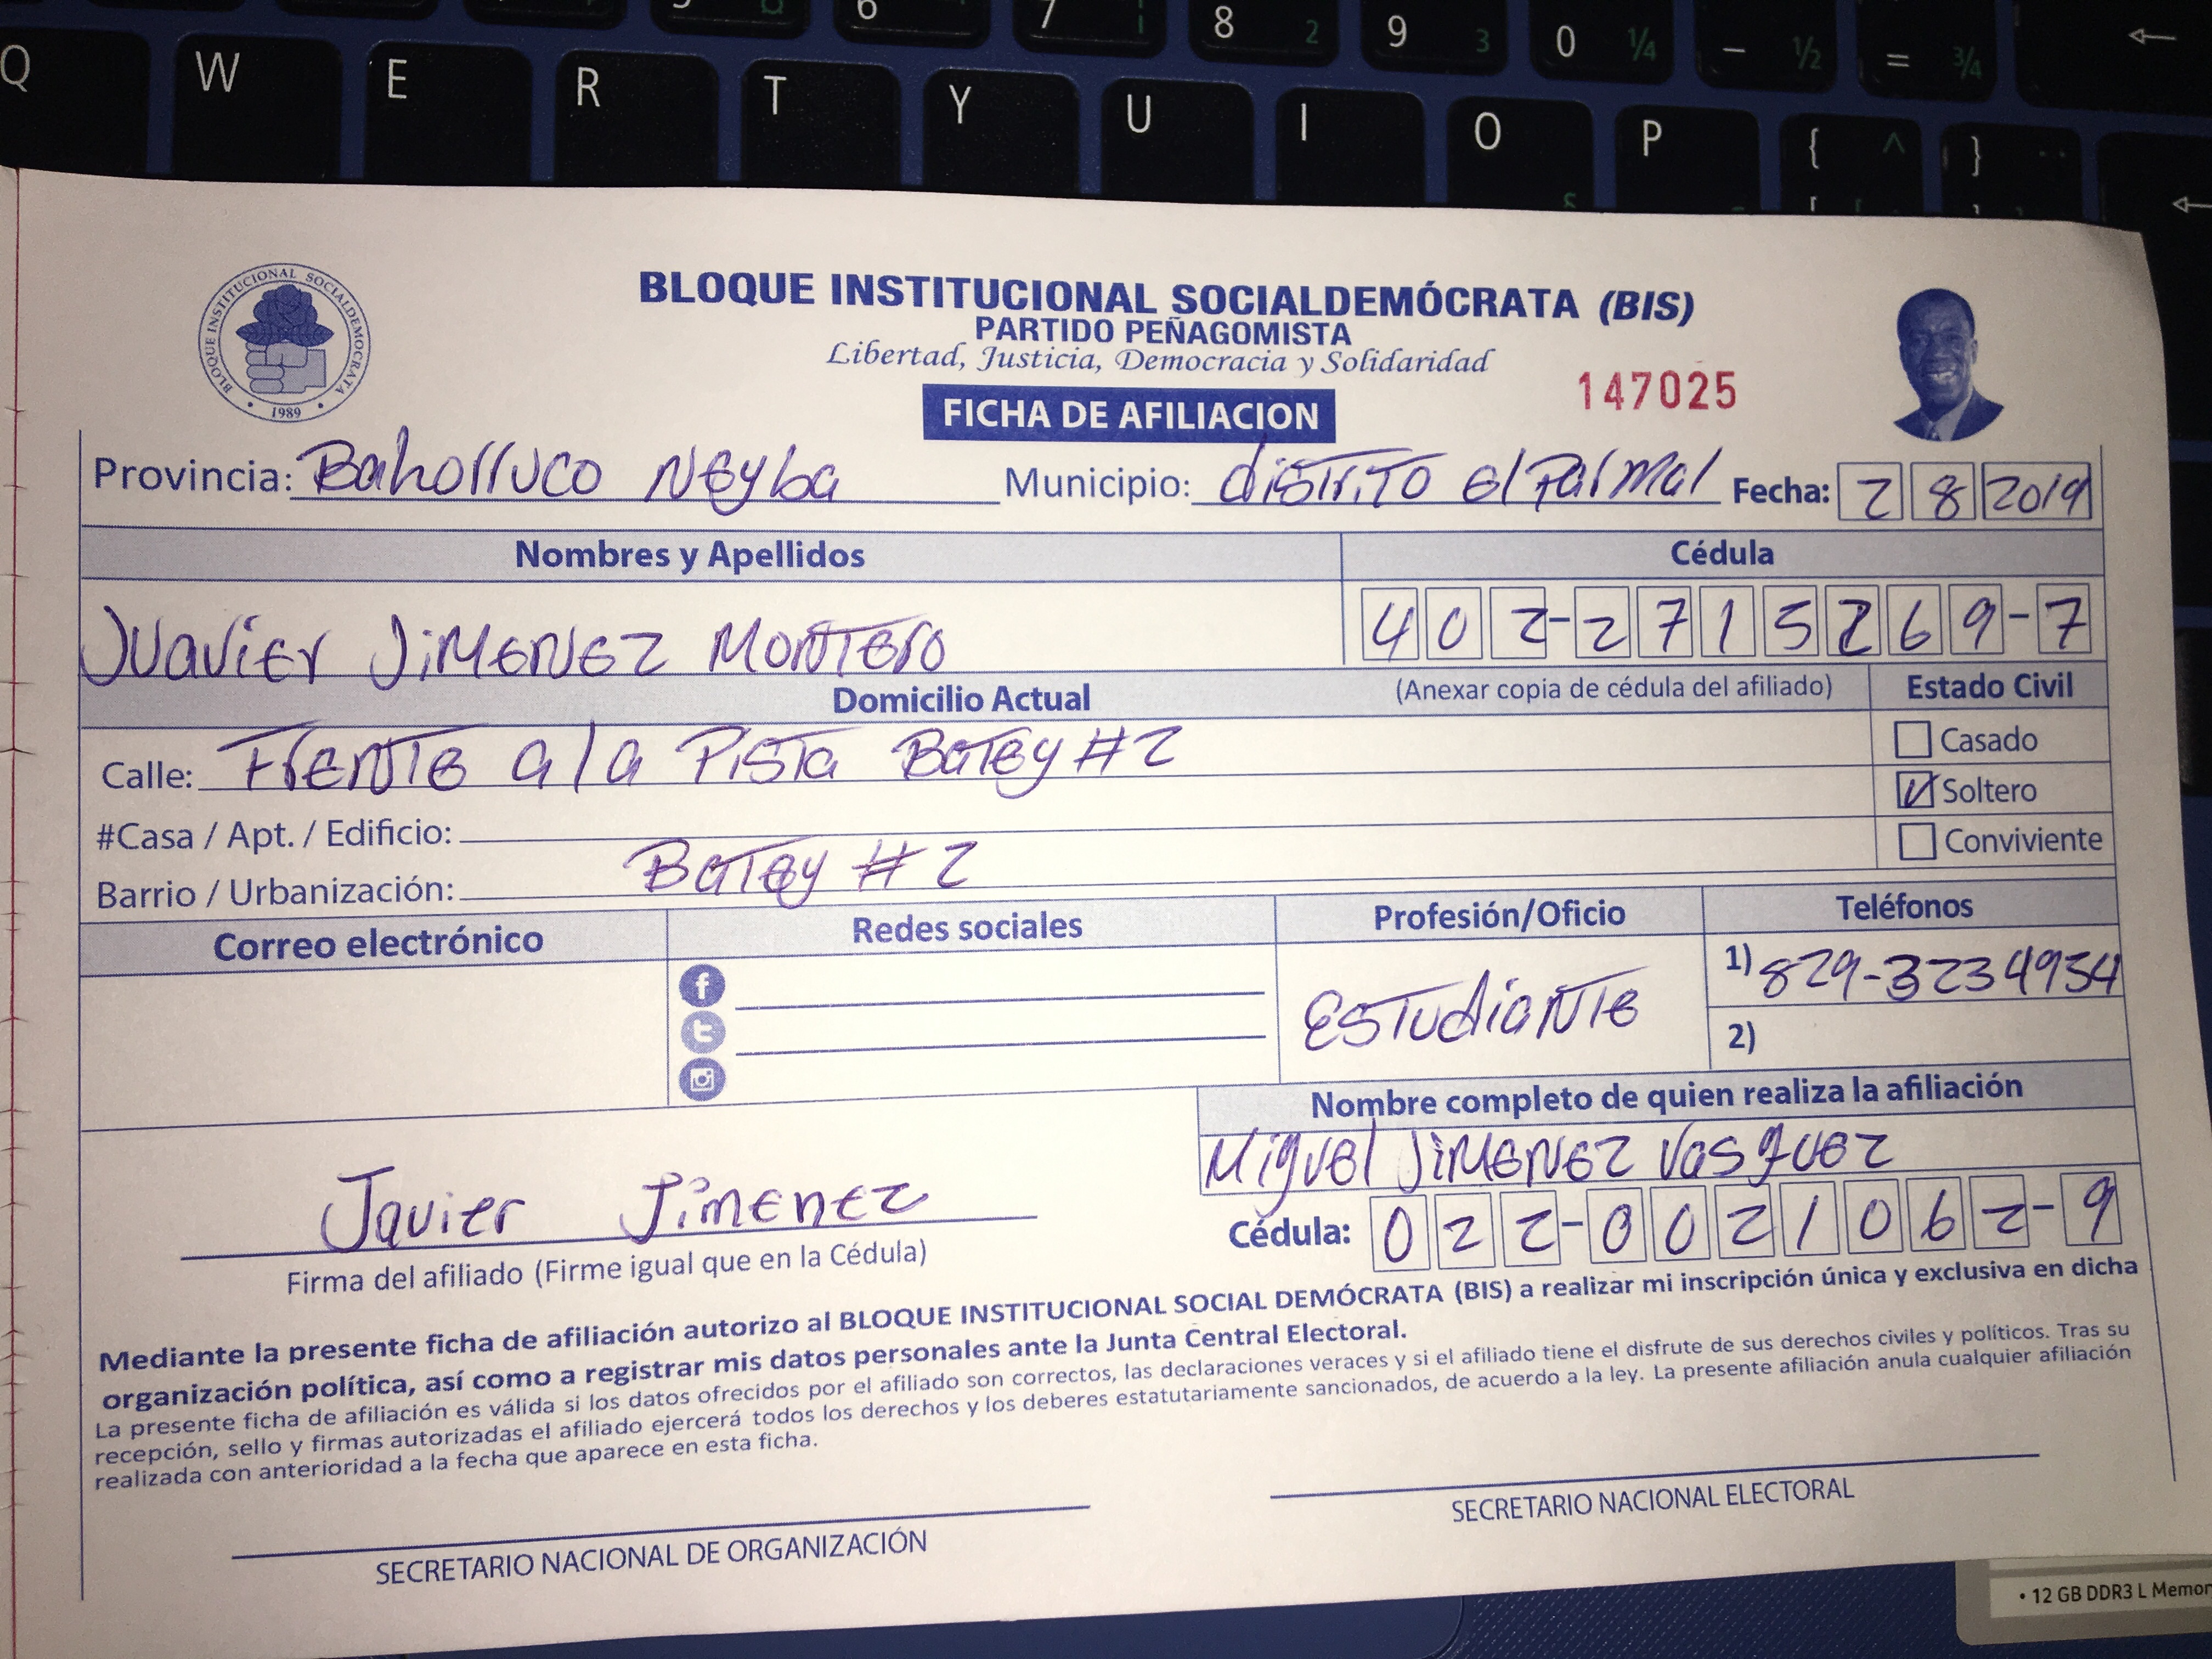 Q W E R T Y U I O P { ^ }
6 7 8 2 9 3 0 ¼ - ½ = ¾ ←
BLOQUE INSTITUCIONAL SOCIALDEMOCRATA
1989
BLOQUE INSTITUCIONAL SOCIALDEMÓCRATA (BIS)
PARTIDO PEÑAGOMISTA
Libertad, Justicia, Democracia y Solidaridad
147025
FICHA DE AFILIACION
Provincia: Bahorruco Neyba Municipio: distrito el Palmal Fecha: 2 8 2019
Nombres y Apellidos Cédula
Juavier Jimenez Montero 402-2715269-7
Domicilio Actual (Anexar copia de cédula del afiliado) Estado Civil
Calle: Frente a la Pista Batey #2
Casado
Soltero
Conviviente
#Casa / Apt. / Edificio:
Barrio / Urbanización: Batey #2
Correo electrónico Redes sociales Profesión/Oficio Teléfonos
Estudiante
1) 829-3234934
2)
Nombre completo de quien realiza la afiliación
Miguel Jimenez Vasquez
Cédula: 022-0021062-9
Javier Jimenez
Firma del afiliado (Firme igual que en la Cédula)
Mediante la presente ficha de afiliación autorizo al BLOQUE INSTITUCIONAL SOCIAL DEMÓCRATA (BIS) a realizar mi inscripción única y exclusiva en dicha
organización política, así como a registrar mis datos personales ante la Junta Central Electoral.
La presente ficha de afiliación es válida si los datos ofrecidos por el afiliado son correctos, las declaraciones veraces y si el afiliado tiene el disfrute de sus derechos civiles y políticos. Tras su
recepción, sello y firmas autorizadas el afiliado ejercerá todos los derechos y los deberes estatutariamente sancionados, de acuerdo a la ley. La presente afiliación anula cualquier afiliación
realizada con anterioridad a la fecha que aparece en esta ficha.
SECRETARIO NACIONAL DE ORGANIZACIÓN
SECRETARIO NACIONAL ELECTORAL
• 12 GB DDR3 L